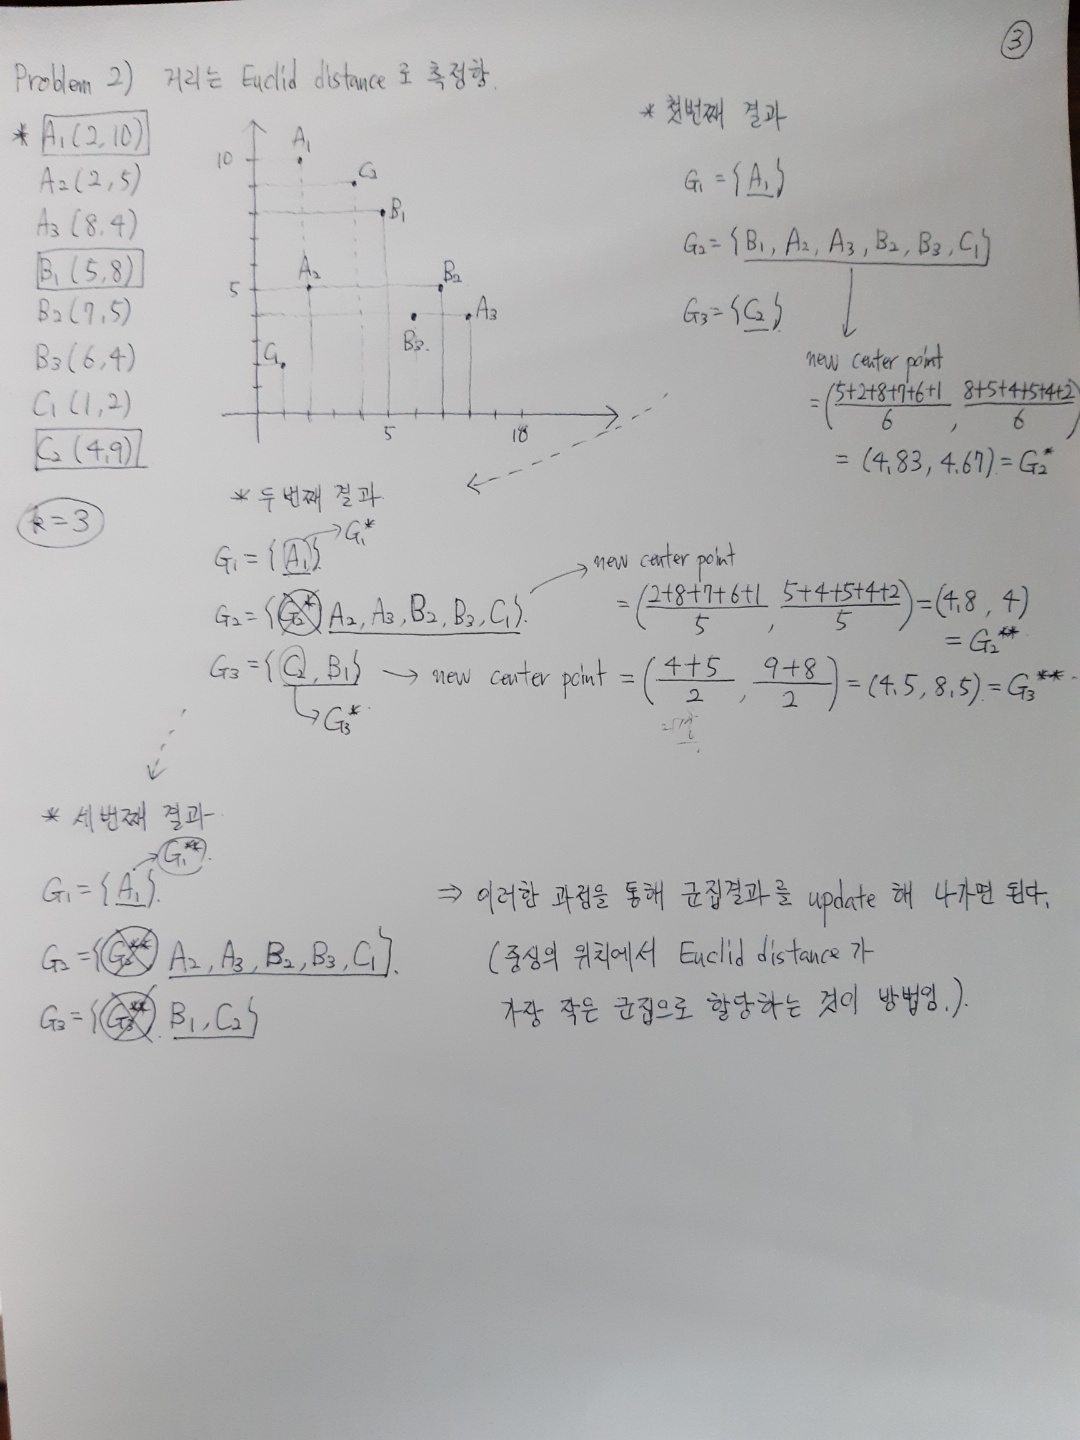 ③
Problem 2) 거리는 Euclid distance로 측정함.
* A₁(2,10)
A₂(2,5)
A₃(8,4)
B₁(5,8)
B₂(7,5)
B₃(6,4)
C₁(1,2)
C₂(4,9)
k=3
A₁
10
C₂
B₁
A₂
B₂
5
A₃
B₃.
C₁
5
10
* 첫번째 결과
G₁ = {A₁}
G₂ = {B₁, A₂, A₃, B₂, B₃, C₁}
G₃ = {C₂}
new center point
= ((5+2+8+7+6+1)/6, (8+5+4+5+4+2)/6)
= (4.83, 4.67) = G₂*
* 두번째 결과
G₁ = {A₁} → G₁*
G₂ = {G₂* A₂, A₃, B₂, B₃, C₁}. → new center point
= ((2+8+7+6+1)/5, (5+4+5+4+2)/5) = (4.8, 4)
= G₂**
G₃ = {C₂, B₁} → new center point = ((4+5)/2, (9+8)/2) = (4.5, 8.5) = G₃**.
→ G₃*
* 세번째 결과
G₁**.
G₁ = {A₁}.
G₂ = {G₂** A₂, A₃, B₂, B₃, C₁}.
G₃ = {G₃** B₁, C₂}
⇒ 이러한 과정을 통해 군집결과를 update 해 나가면 된다.
(중심의 위치에서 Euclid distance가
가장 작은 군집으로 할당하는 것이 방법임.).